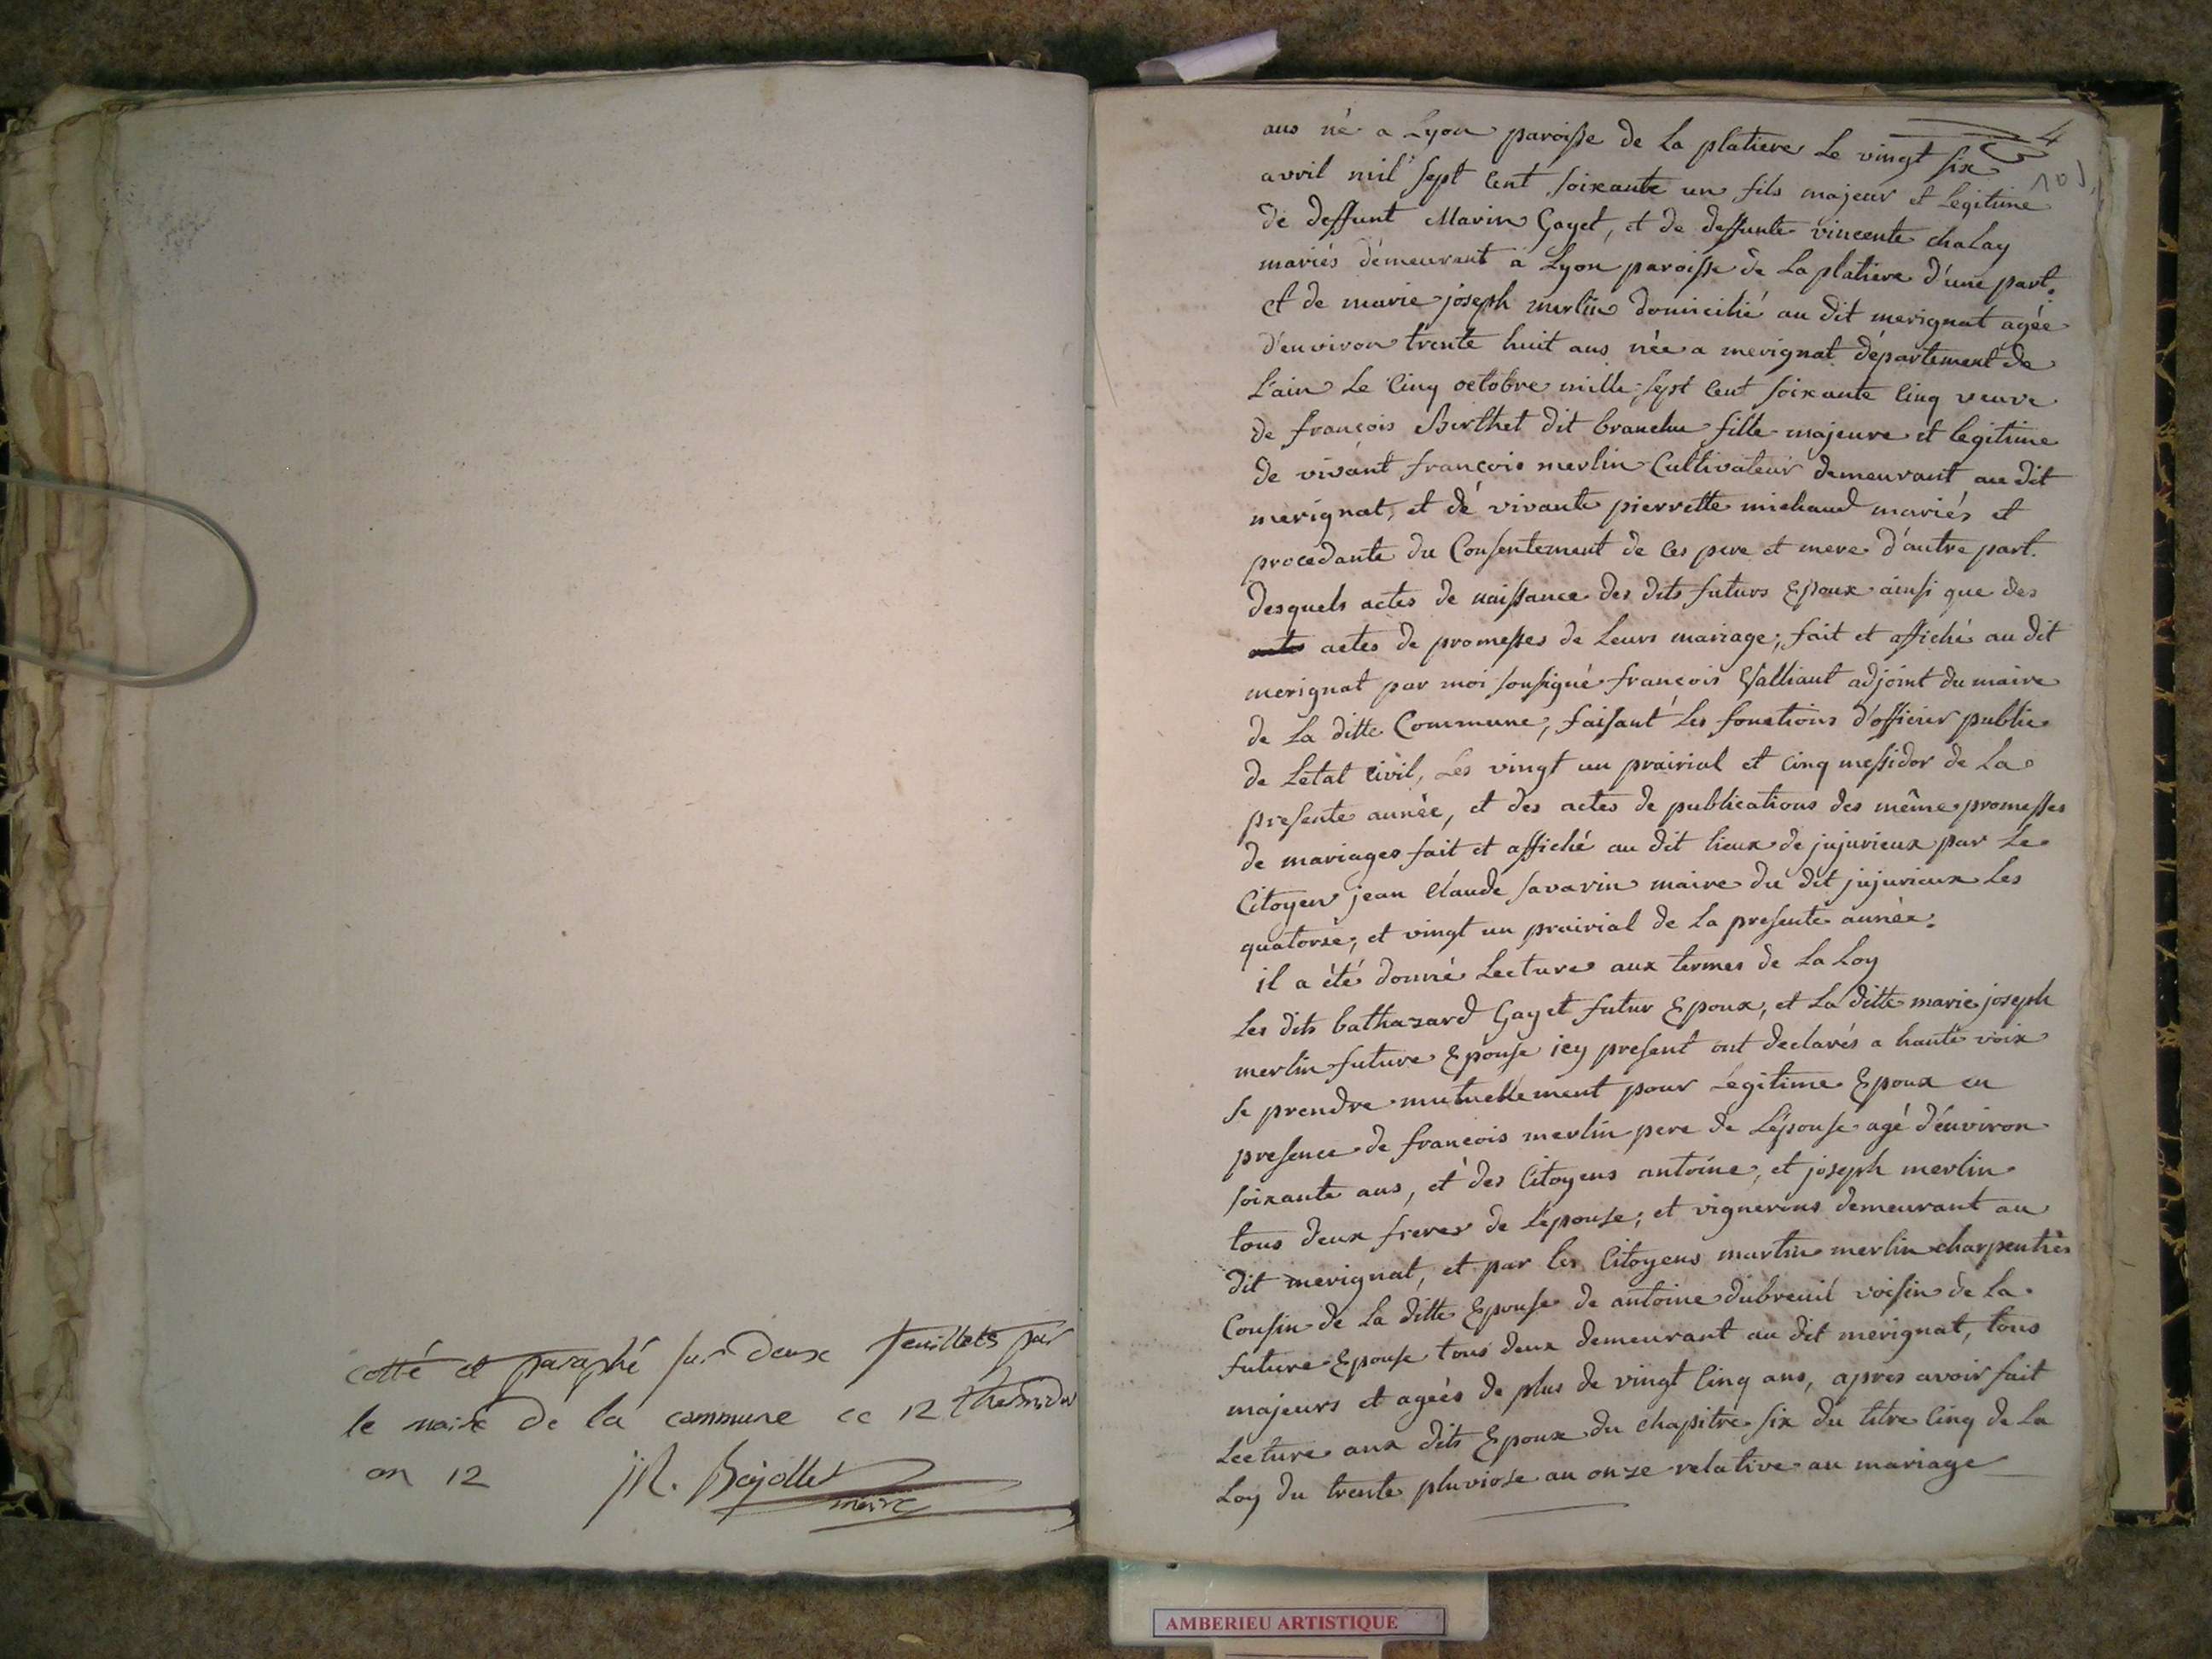 cotté et paraphé sur deux feuillets par
le maire de la commune ce 12 thermidor
an 12
maire
4
103
ans né a Lyon paroisse de La platiere Le vingt six
avril mil sept Cent soixante un fils majeur et Legitime
de deffunt Marin Gayet, et de deffunte vincente chalay
mariés démeurant a Lyon paroisse de La platiere d'une part.
et de marie joseph merlin domicilié au dit merignat agée
d'environ trente huit ans née a merignat département de
L'ain Le Cinq octobre mille sept Cent soixante Cinq veuve
de françois Berthet dit branche fille majeure et legitime
de vivant françois merlin Cultivateur demeurant au dit
merignat, et dé vivante pierrette michaud mariés et
procedante du Consentement de Ces pere et mere d'autre part.
desquels actes de naissance des dits futurs Epoux ainsi que des
actes de promesses de Leurs mariage; fait et affiché au dit
merignat par moi sousigné françois Valliant adjoint du maire
de La ditte Commune, faisant Les fonctions d'officier public
de Letat Civil, Les vingt un prairial et Cinq messidor de La
presente année, et des actes de publications des même promesses
de mariages fait et affiché au dit lieux de jujurieux par Le
Citoyen jean Claude savarin maire du dit jujurieux Les
quatorse; et vingt un prairial de La presente année.
il a été donné Lecture aux termes de La Loy
Les dits bathazard Gayet futur Epoux, et La ditte marie joseph
merlin future Epouse icy present ont declarés a haute voix
se prendre mutuellement pour Legitime Epoux en
presence de françois merlin pere de L'épouse agé d'environ
soixante ans, et des Citoyens antoine, et joseph merlin
tous deux freres de L'epouse; et vignerons demeurant au
dit merignat, et par les Citoyens martin merlin charpentier
Cousin de La ditte Epouse de antoine dubreuil voisin de La
future Epouse tous deux demeurant au dit merignat, tous
majeurs et ageés de plus de vingt Cinq ans, apres avoir fait
Lecture aux dits Epoux du chapitre six du titre Cinq de La
Loy du trente pluviose an onze relative au mariage
AMBERIEU ARTISTIQUE